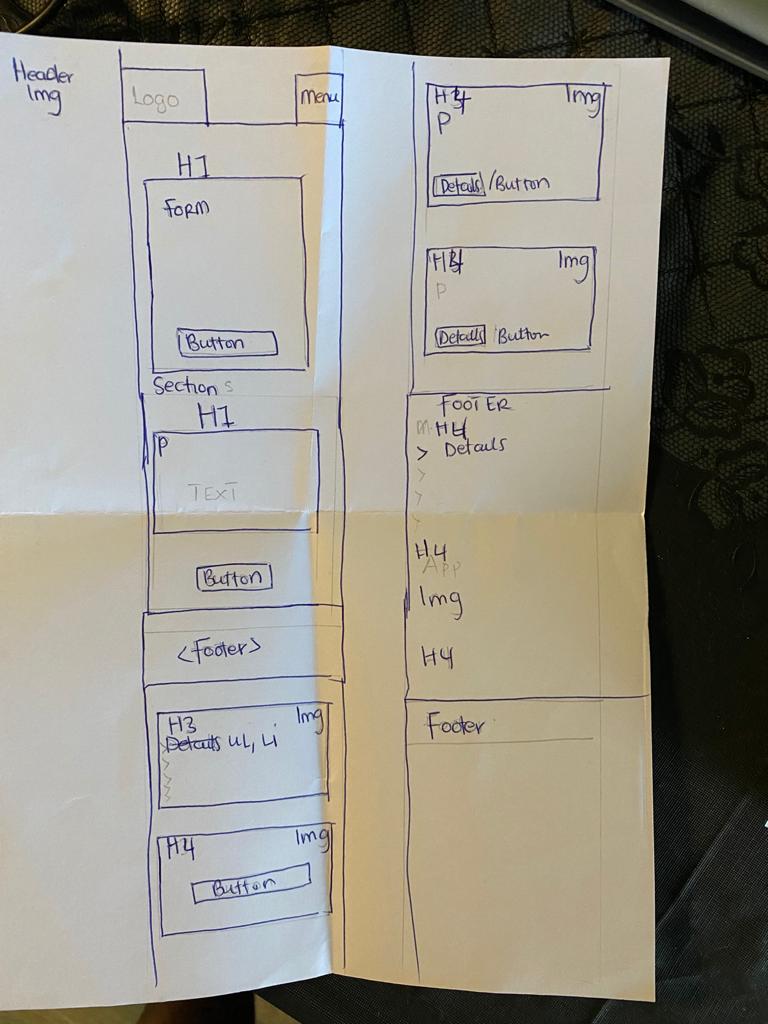 Header
Img
Logo
Menu
H1
FORM
Button
Sections
H1
P
TEXT
Button
<Footer>
H3 Img
> Details UL, Li
>
>
>
>
H4 Img
Button
H4 Img
P
Details /Button
H4 Img
P
Details Button
FOOTER
H4
> Details
>
>
>
H4
App
Img
H4
Footer